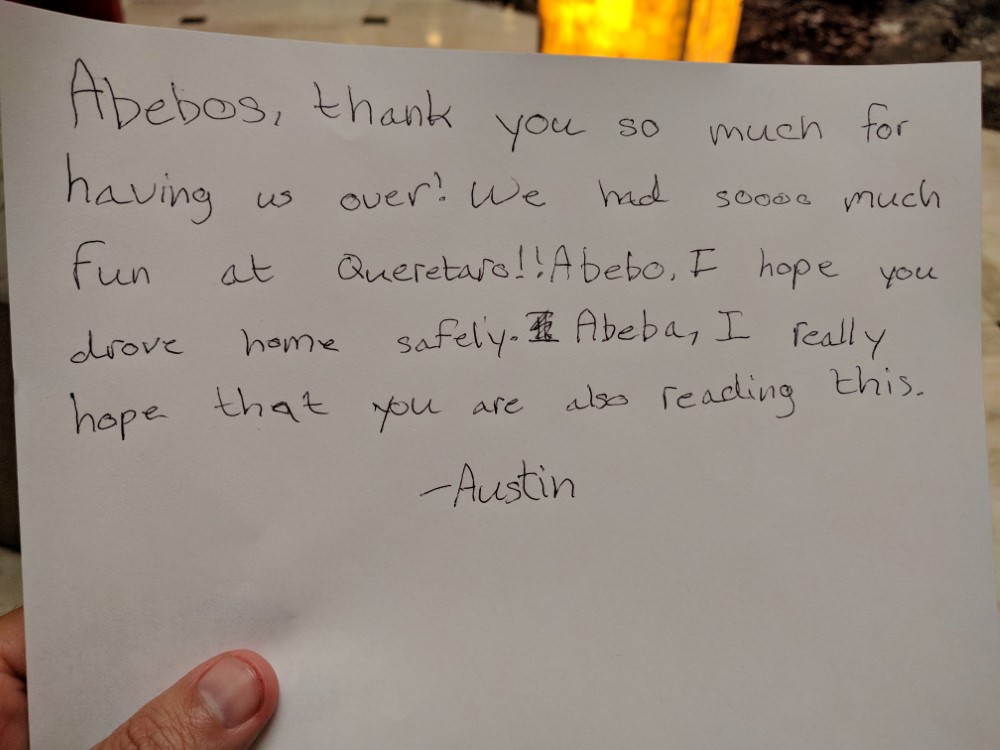 Abebos, thank you so much for
having us over! We had soooo much
fun at Queretaro!! Abebo, I hope you
drove home safely. Abeba, I really
hope that you are also reading this.
-Austin